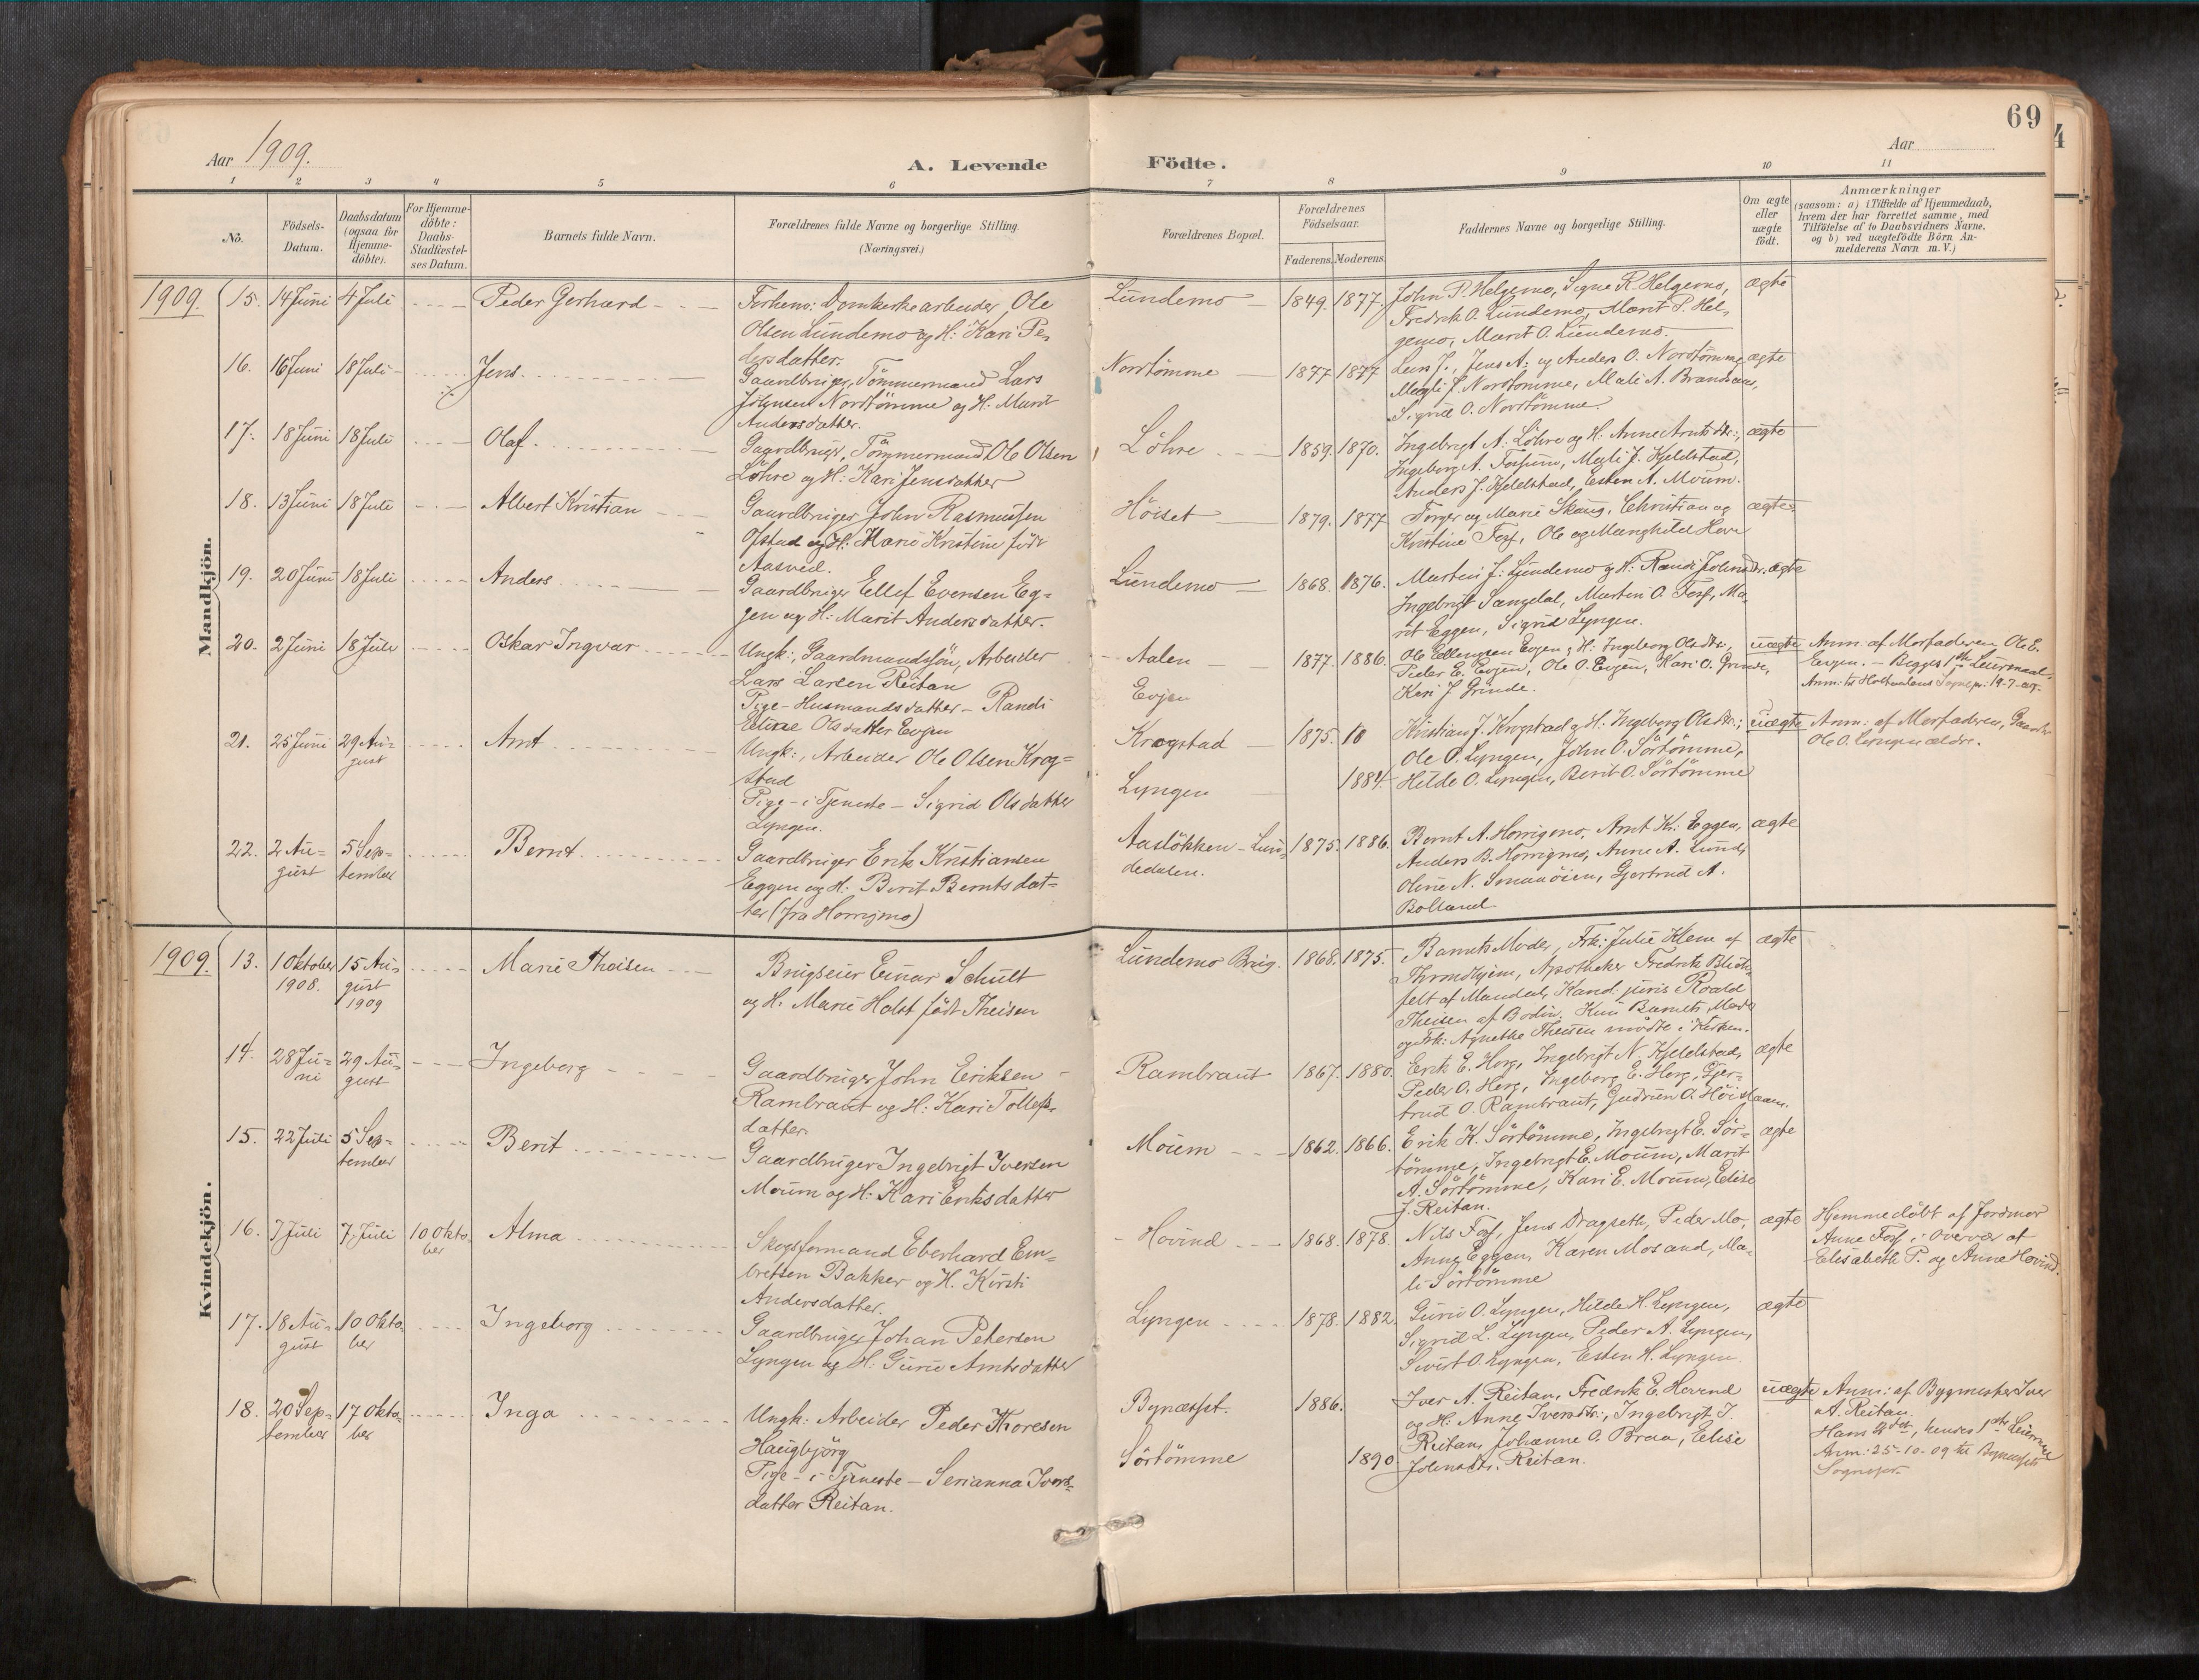 69
Aar 1909.
A. Levende Födte.
Aar
1 2 3 4 5 6 7 8 9 10 11
No.
Födsels-
Datum.
Daabsdatum
(ogsaa for
Hjemme-
döbte).
For Hjemme-
döbte:
Daabs-
Stadfæstel-
ses Datum.
Barnets fulde Navn.
Forældrenes fulde Navne og borgerlige Stilling.
(Næringsvei.)
Forældrenes Bopæl.
Forældrenes
Födselsaar.
Faderens. Moderens.
Faddernes Navne og borgerlige Stilling.
Om ægte
eller
uægte
födt.
Anmærkninger
(saasom: a) i Tilfælde af Hjemmedaab,
hvem der har forrettet samme, med
Tilföielse af to Daabsvidners Navne,
og b) ved uægtefödte Börn An-
melderens Navn m. V.)
Mandkjön.
1909. 15. 14 Juni 4 Juli Peder Gerhard
Forhenv: Domkirkearbeider Ole
Olsen Lundemo og H: Kari Pe-
dersdatter.
Lundemo 1849. 1877.
John P. Helgemo, Signe R. Helgemo,
Fredrik O. Lundemo, Marit P. Hel-
gemo, Marit O. Lundemo.
ægte
16. 16 Juni 18 Juli Jens
Gaardbruger, Tömmermand Lars
Johnsen Nordtömme og H: Marit
Andersdatter.
Nordtömme 1877 1877
Jens A. og Anders O. Nordtömme
Magli J. Nordtömme, Mali A.
Sigrid O. Nordtömme.
ægte
17. 18 Juni 18 Juli Olaf.
Gaardbruger, Tömmermand Ole Olsen
Löhre og H: Kari Jensdatter
Löhre 1859. 1870.
Ingebrigt A. Löhre og H: Anne Arntsdtr.,
Ingeborg A. Fossum, Magli J. Kjeldstad,
Anders J. Kjeldstad, Esten A. Moum.
ægte
18. 13 Juni 18 Juli Albert Kristian
Gaardbruger John Rasmussen
Ofstad og H: Marie Kristine födt
Aasved.
Höiset 1879. 1877
Torger og Marie Skaug, Christian og
Kristine Foss, Ole og Hove
ægte
19. 20 Juni 18 Juli Anders
Gaardbruger Ellef Evensen Eg-
gen og H: Marit Andersdatter.
Lundemo 1868. 1876.
Martin J. Lundemo og H: Randi Johnsdtr.
Ingebrigt Samdal, Martin O. Foss, Ma-
rit Eggen, Sigrid Lyngen.
ægte
20. 2 Juni 18 Juli Oskar Ingvar
Ungk:, Gaardmandssön, Arbeider
Lars Larsen Reitan
Pige - Husmandsdatter - Randi
Elise Olsdatter Evjen
Aalen
Evjen
1877. 1886.
Ole Ellingsen Evjen og H: Ingeborg Olsdtr.,
Peder E. Evjen, Ole O. Evjen, Kari O. Grinde,
Kari J. Grinde.
uægte
Anm: af Morfaderen Ole E.
Evjen. - Begges 1ste Leiermaal.
Anm: til Holtaalens Sognepr: 19-7-09.
21. 25 Juni 29 Au-
gust
Arnt
Ungk:, Arbeider Ole Olsen Krog-
stad
Pige - i Tjeneste - Sigrid Olsdatter
Lyngen.
Krogstad
Lyngen
1875. 18
1884.
Kristian J. Krogstad og H: Ingeborg Olsdtr.;
Ole O. Lyngen, John O. Sörtömme,
Hilde O. Lyngen, Berit O. Sörtömme
uægte
Anm: af Morfaderen, Gaardbr
Ole O. Lyngen ældre.
22. 2 Au-
gust
5 Sep-
tember
Bernt
Gaardbruger Erik Kristiansen
Eggen og H: Berit Bernts dat-
ter (fra Horrigmo)
Aaslökken - Lun-
dedalen.
1875. 1886.
Bernt A. Horrigmo, Arnt Kr. Eggen,
Anders B. Horrigmo, Anne A. Lund,
Oline N. Smaaöien, Gjertrud A.
Bolland.
ægte
Kvindekjön.
1909. 13. 1 Oktober
1908.
15 Au-
gust
1909
Marie Theisen
Brugseier Einar Schult
og H: Marie Holst födt Theisen
Lundemo Brug. 1868. 1875.
Barnets Moder, Frk: Julie Klem af
Throndhjem, Apotheker Fredrik Blich-
felt af Mandal, Kand. juris Roald
Theisen af Bodin. Kun Barnets Moder
og Frk: Agnethe Theisen mödte i Kirken.
ægte
14. 28 Ju-
ni
29 Au-
gust
Ingeborg
Gaardbruger John Eriksen
Rambraut og H: Kari Tollefs-
datter.
Rambraut 1867. 1880.
Erik E. Horg, Ingebrigt N. Kjeldstad,
Peder O. Horg, Ingeborg E. Horg, Gjer-
trud O. Rambraut, Gudrun O.
ægte
15. 22 Juli 5 Sep-
tember
Berit
Gaardbruger Ingebrigt Iversen
Moum og H: Kari Eriksdatter
Moum 1862. 1866.
Erik K. Sörtömme, Ingebrigt E. Sör-
tömme, Ingebrigt E. Moum, Marit
A. Sörtömme, Kari E. Moum, Elise
J. Reitan.
ægte
16. 7 Juli 7 Juli 10 Okto-
ber
Alma
Skogsformand Eberhard Em-
bretsen Bakker og H. Kirsti
Andersdatter.
Hovind 1868. 1878.
Nils Foss, Jens Dragseth, Peder Mo,
Anne Eggen, Karen Mosand, Ma-
li Sörtömme
ægte
Hjemmedöbt af Jordmor
Anne Foss i Overvær af
Elisabeth P. og Anne Hovind.
17. 18 Au-
gust
10 Okto-
ber
Ingeborg
Gaardbruger Johan Petersen
Lyngen og H: Guru Arntsdatter
Lyngen 1878. 1882.
Guru O. Lyngen, Hilde H. Lyngen,
Sigrid L. Lyngen, Peder A. Lyngen,
Sivert O. Lyngen, Esten H. Lyngen
ægte
18. 20 Sep-
tember
17 Okto-
ber
Inga
Ungk: Arbeider Peder Thoresen
Haugbjörg
Pige - i Tjeneste - Serianna Ivers-
datter Reitan.
Bynæsset.
Sörtömme
1886.
1890
Iver A. Reitan, Fredrik E. Hovind
og H: Anne Iversdtr., Ingebrigt I.
Reitan, Johanne O. Braa, Elise
Johnsdtr. Reitan.
uægte
Anm: af Bygmester Iver
A. Reitan.
Hans , hendes 1ste Leiermaal
Anm: 25-10-09 til Bynæssets
Sognepr.